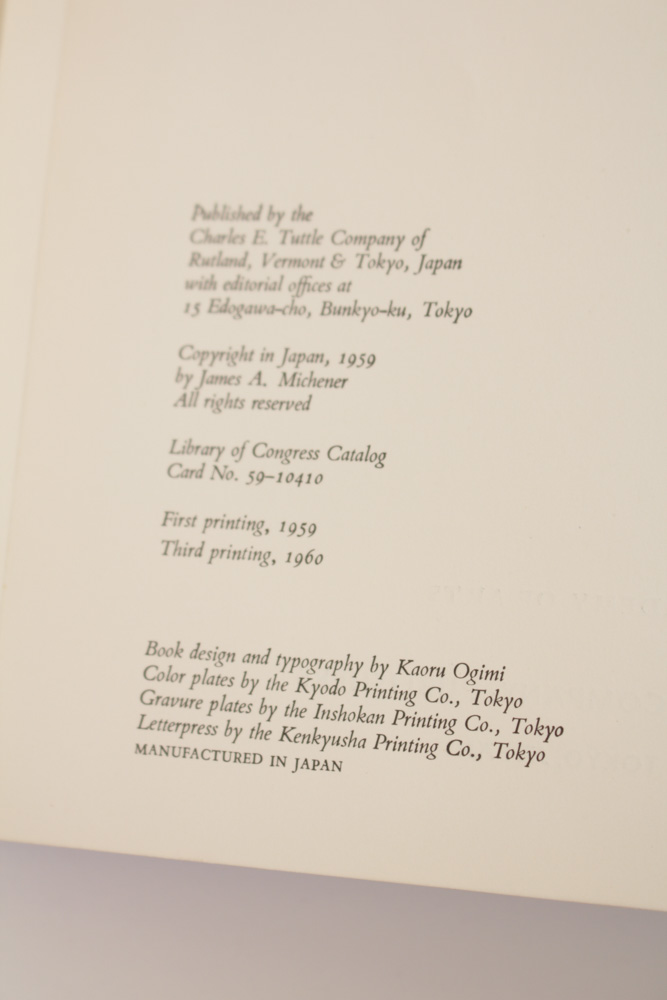 Published by the
Charles E. Tuttle Company of
Rutland, Vermont & Tokyo, Japan
with editorial offices at
15 Edogawa-cho, Bunkyo-ku, Tokyo
Copyright in Japan, 1959
by James A. Michener
All rights reserved
Library of Congress Catalog
Card No. 59-10410
First printing, 1959
Third printing, 1960
Book design and typography by Kaoru Ogimi
Color plates by the Kyodo Printing Co., Tokyo
Gravure plates by the Inshokan Printing Co., Tokyo
Letterpress by the Kenkyusha Printing Co., Tokyo
MANUFACTURED IN JAPAN